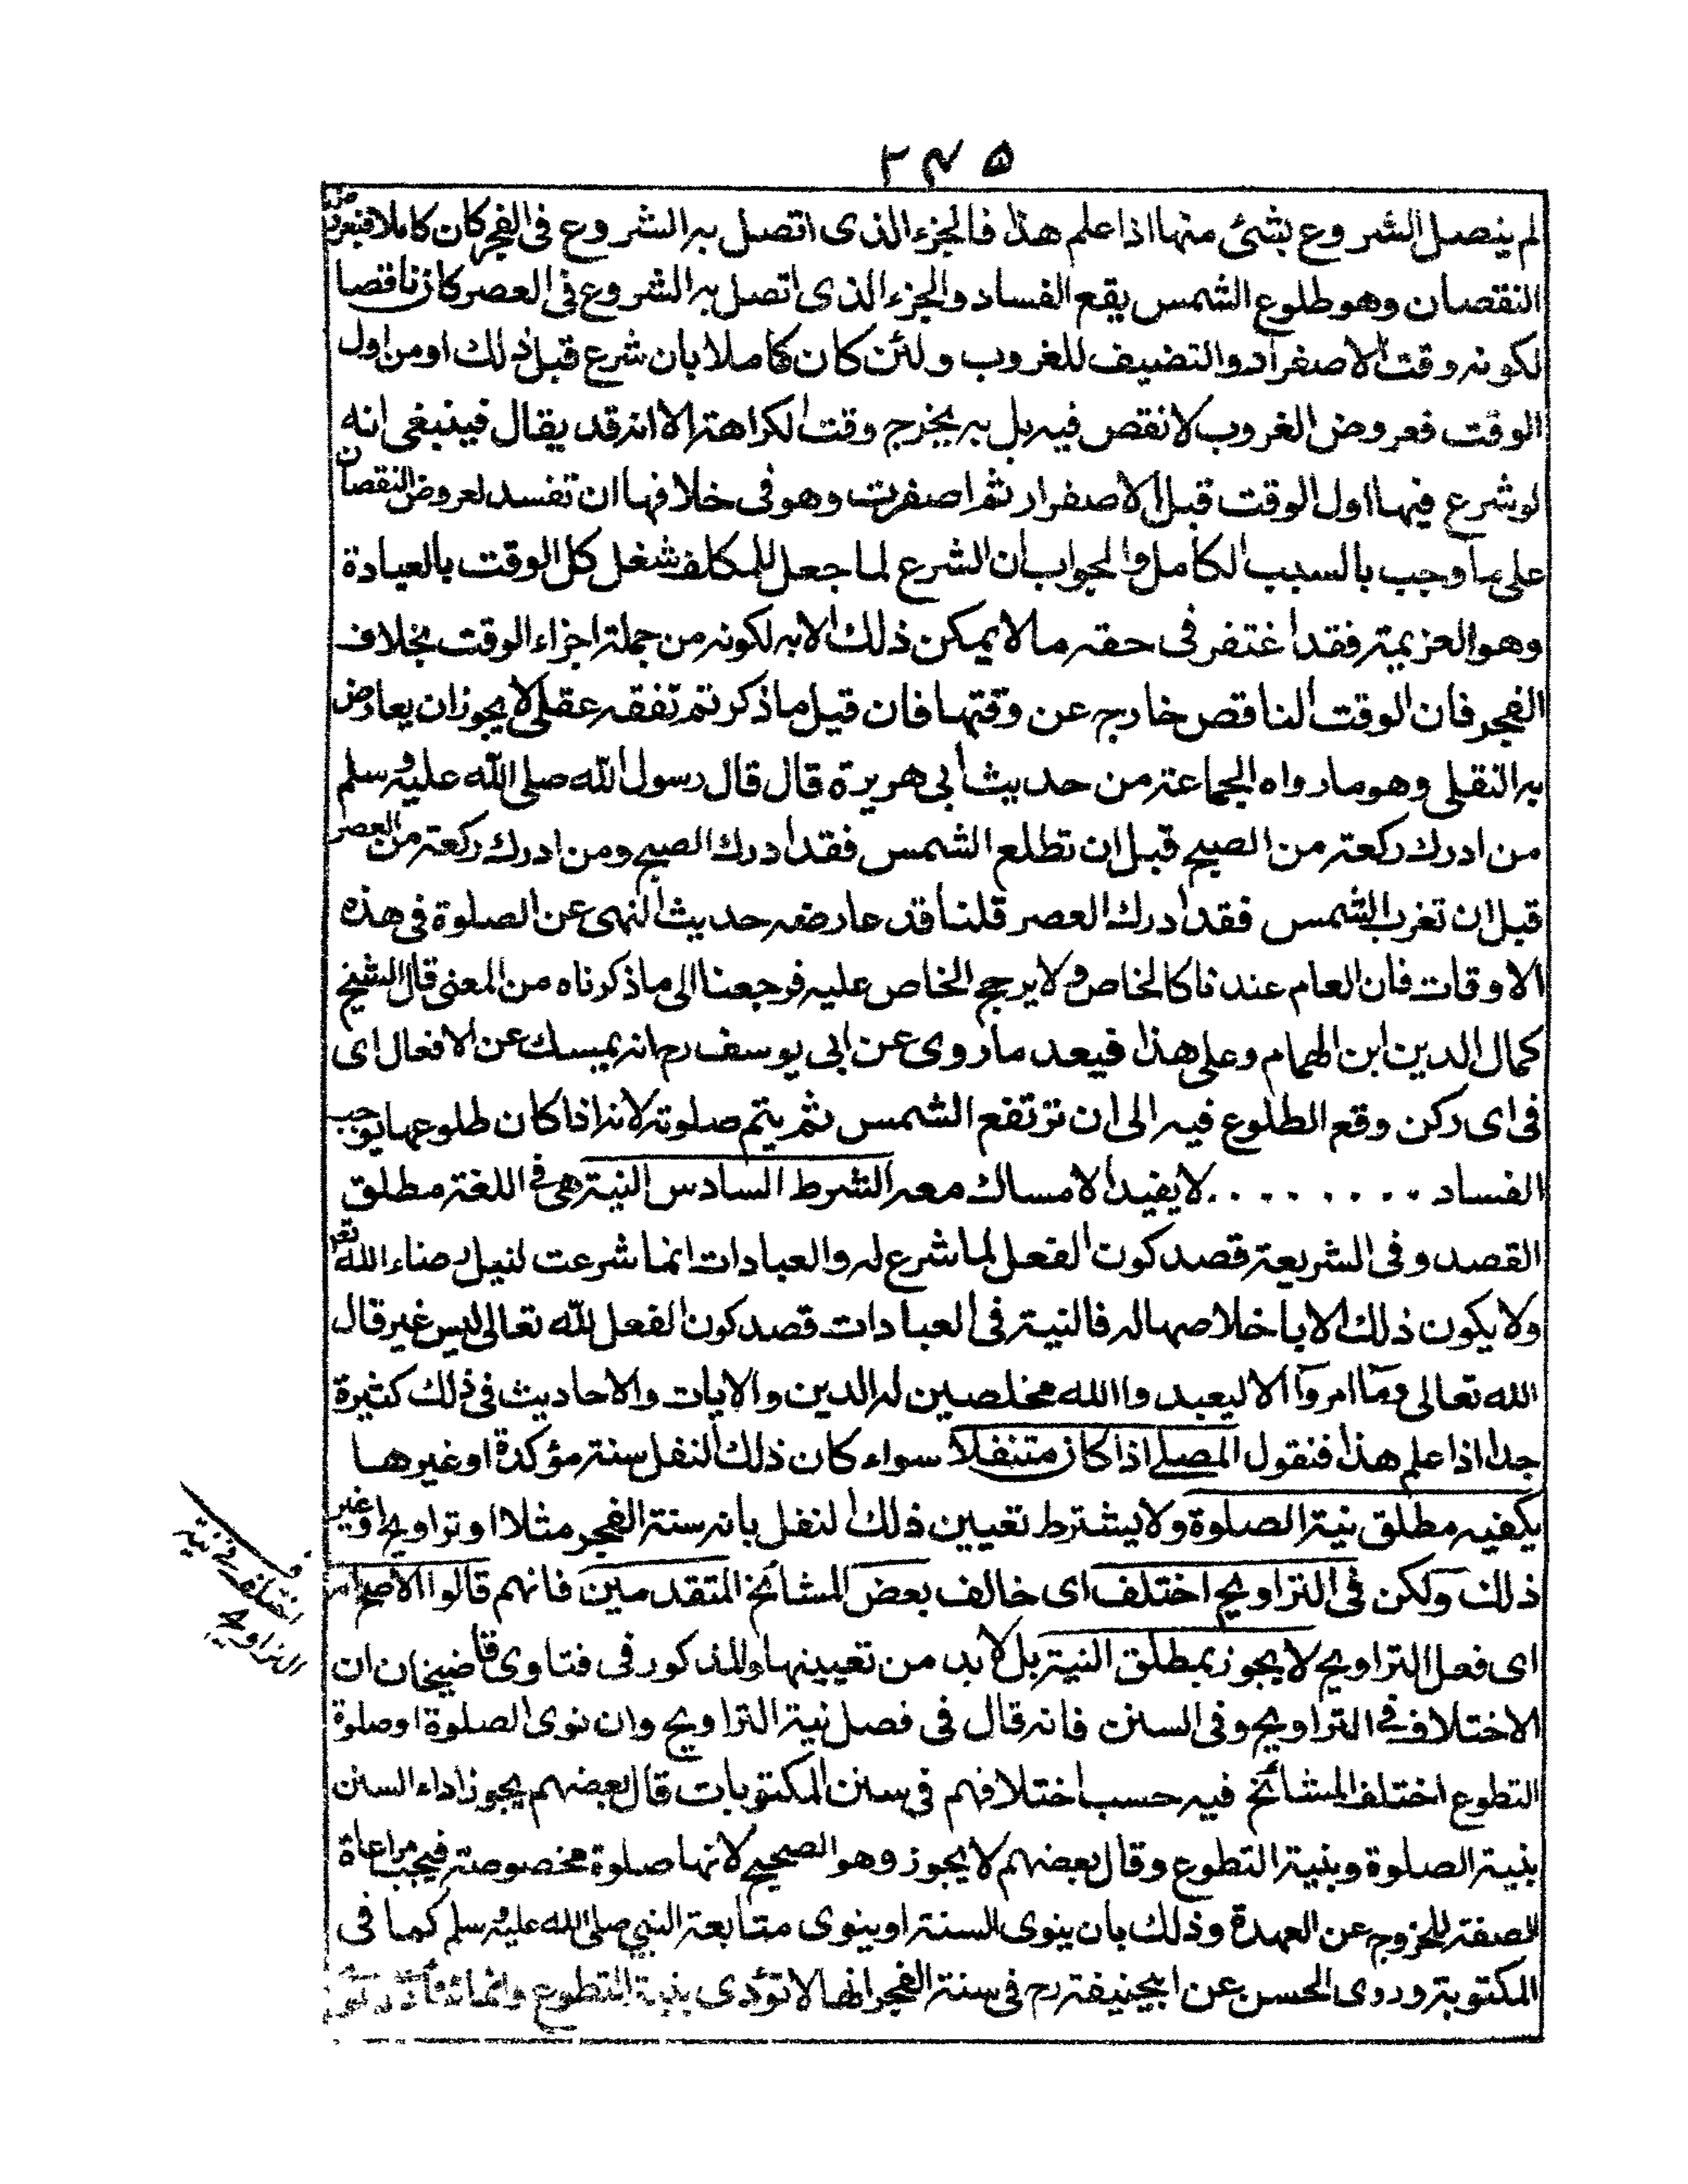 ۲۴۵
لم يتصل الشروع بشئ منها اذا علم هذا فالجزء الذى اتصل به الشروع فى الفجر كان كاملا فبعروض
النقصان وهو طلوع الشمس يقع الفساد والجزء الذى اتصل به الشروع فى العصر كان ناقصا
لكونه وقت الاصفرار والتضيف للغروب ولئن كان كاملا بان شرع قبل ذلك او من اول
الوقت فعروض الغروب لا نقص فيه بل به يخرج وقت الكراهة الا انه قد يقال فينبغى انه
لو شرع فيها اول الوقت قبل الاصفرار ثم اصفرت وهو فى خلافها ان تفسد لعروض النقصان
على ما وجب بالسبب الكامل والجواب ان الشرع لما جعل للمكلف شغل كل الوقت بالعبادة
وهو العزيمة فقد اغتفر فى حقه ما لا يمكن ذلك الا به لكونه من جملة اجزاء الوقت بخلاف
الفجر فان الوقت الناقص خارج عن وقتها فان قيل ما ذكرتم تفقه عقلى لا يجوز ان يعارض
به النقلى وهو ما رواه الجماعة من حديث ابى هريرة قال قال رسول الله صلى الله عليه وسلم
من ادرك ركعة من الصبح قبل ان تطلع الشمس فقد ادرك الصبح ومن ادرك ركعة من العصر
قبل ان تغرب الشمس فقد ادرك العصر قلنا قد عارضه حديث النهى عن الصلوة فى هذه
الاوقات فان العام عندنا كالخاص ولا يرجح الخاص عليه فرجعنا الى ما ذكرناه من المعنى قال الشيخ
كمال الدين ابن الهمام وعلى هذا فيعد ما روى عن ابى يوسف رح انه يمسك عن الافعال اى
فى اى ركن وقع الطلوع فيه الى ان ترتفع الشمس ثم يتم صلوته لانه اذا كان طلوعها يوجب
الفساد ......... لا يفيد الامساك معه الشرط السادس النية هى فى اللغة مطلق
القصد وفى الشريعة قصد كون الفعل لما شرع له والعبادات انما شرعت لنيل رضاء الله تعم
ولا يكون ذلك الا باخلاصها له فالنية فى العبادات قصد كون الفعل لله تعالى ليس غير قال
الله تعالى وما امروا الا ليعبدوا الله مخلصين له الدين والايات والاحاديث فى ذلك كثيرة
جدا اذا علم هذا فنقول المصلے اذا كان متنفلا سواء كان ذلك النفل سنة مؤكدة او غيرها
يكفيه مطلق نية الصلوة ولا يشترط تعيين ذلك النفل بانه سنة الفجر مثلا او تراويح او غير
ذلك ولكن فى التراويح اختلف اى خالف بعض المشائخ المتقدمين فانهم قالوا الاصح انه
اى فعل التراويح لا يجوز بمطلق النية بل لا بد من تعيينها والمذكور فى فتاوى قاضيخان ان
الاختلاف فے التراويح وفى السنن فانه قال فى فصل نية التراويح وان نوى الصلوة او صلوة
التطوع اختلف المشائخ فيه حسب اختلافهم فى سنن المكتوبات قال بعضهم يجوز اداء السنن
بنية الصلوة وبنية التطوع وقال بعضهم لا يجوز وهو الصحيح لانها صلوة مخصوصة فيجب مراعاة
الصفة للخروج عن العهدة وذلك بان ينوى السنة او ينوى متابعة النبي صلى الله عليه وسلم كما فى
المكتوبة وروى الحسن عن ابيحنيفة رح فى سنة الفجر انها لا تؤدى بنية التطوع وانما
فى نية
التراويح